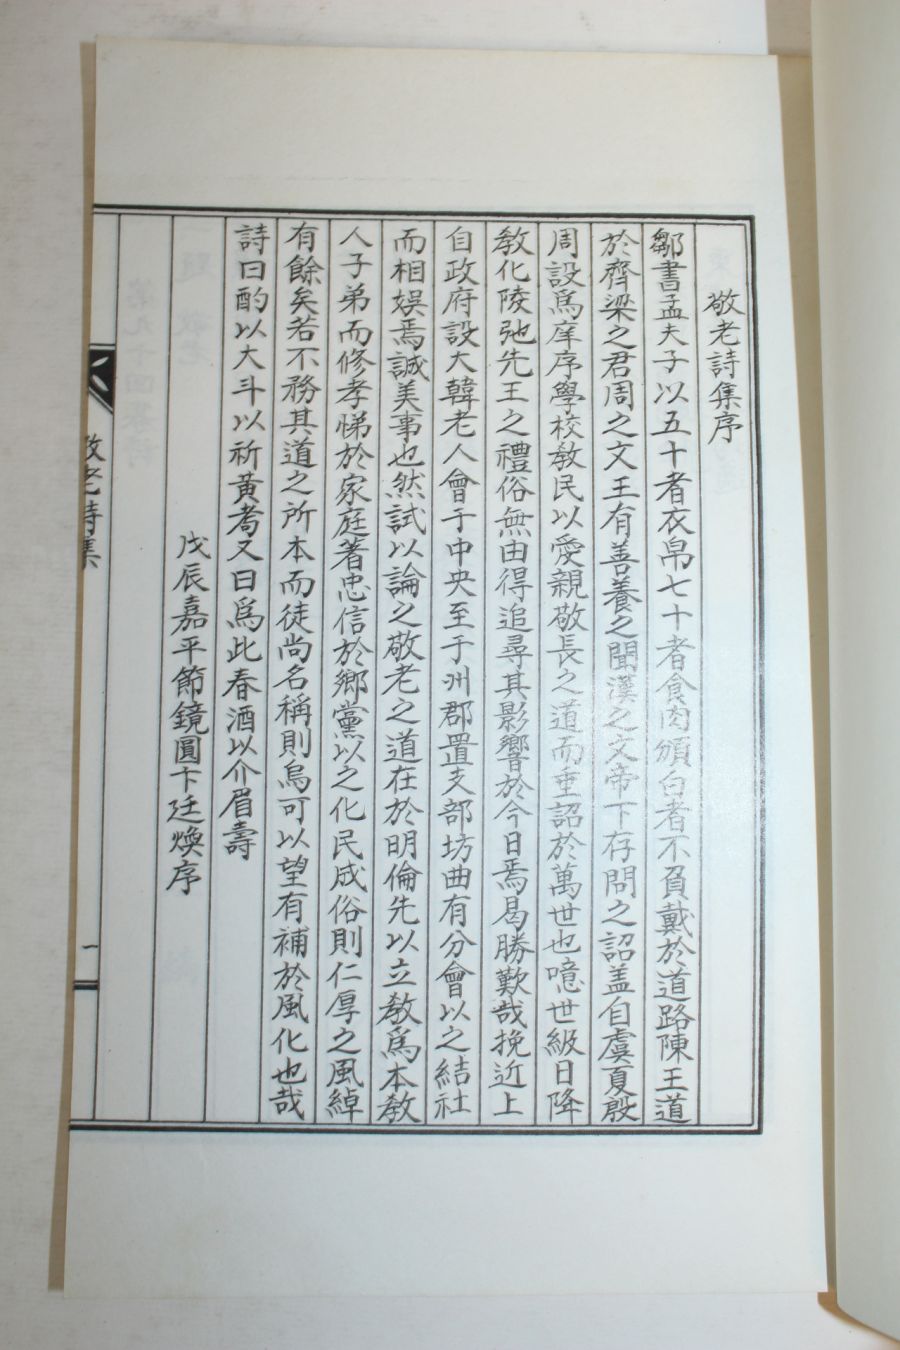 敬老詩集序
鄒書孟夫子以五十者衣帛七十者食肉頒白者不負戴於道路陳王道
於齊梁之君周之文王有善養之聞漢之文帝下存問之詔盖自虞夏殷
周設爲庠序學校敎民以愛親敬長之道而垂詔於萬世也噫世級日降
敎化陵弛先王之禮俗無由得追尋其影響於今日焉曷勝歎哉挽近上
自政府設大韓老人會于中央至于州郡置支部坊曲有分會以之結社
而相娛焉誠美事也然試以論之敬老之道在於明倫先以立敎爲本敎
人子弟而修孝悌於家庭著忠信於鄉黨以之化民成俗則仁厚之風綽
有餘矣若不務其道之所本而徒尚名稱則烏可以望有補於風化也哉
詩曰酌以大斗以祈黃耉又曰爲此春酒以介眉壽
戊辰嘉平節鏡圓卞廷煥序
敬老詩集
一